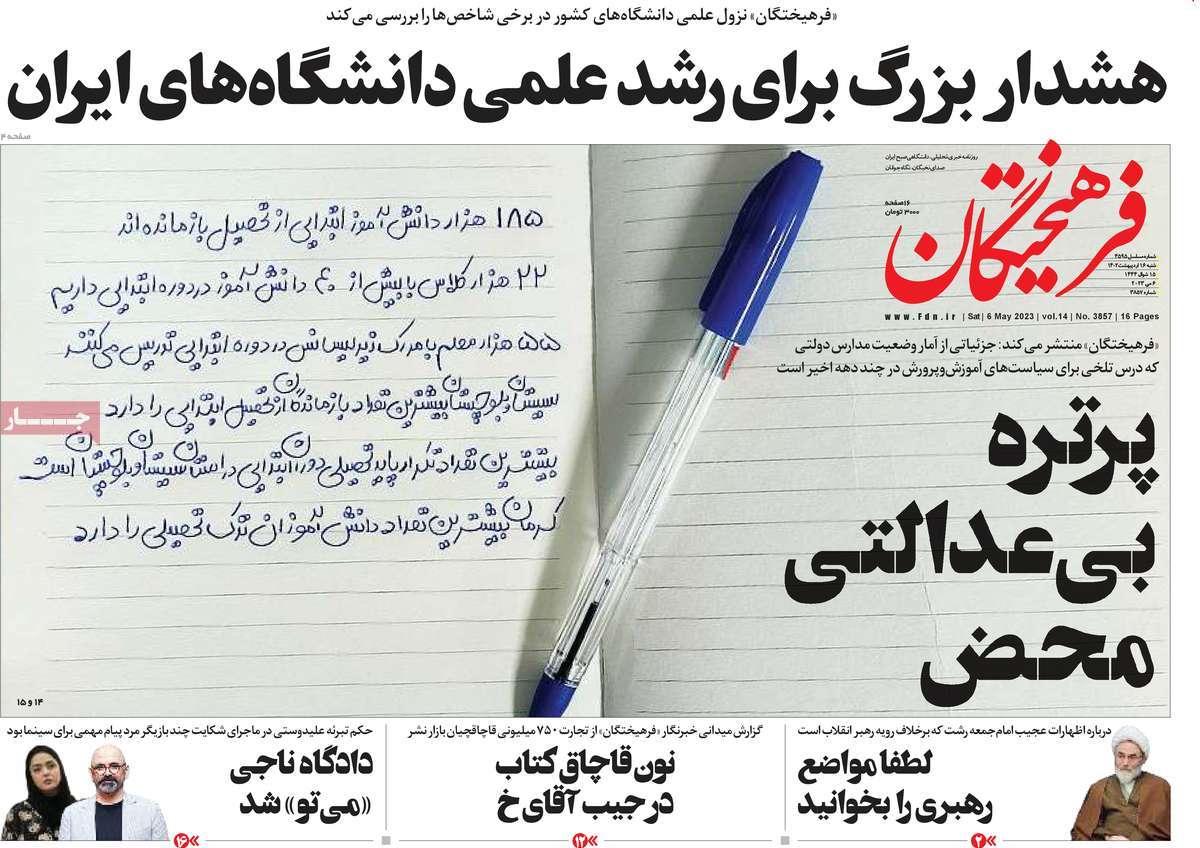 «فرهیختگان» نزول علمی دانشگاه‌های کشور در برخی شاخص‌ها را بررسی می‌کند
هشدار بزرگ برای رشد علمی دانشگاه‌های ایران
صفحه ۴
روزنامه خبری تحلیلی، دانشگاهی صبح ایران
صدای نخبگان، نگاه جوانان
۱۶ صفحه
۳۰۰۰ تومان
فرهیختگان
شماره مسلسل ۴۵۹۵
شنبه ۱۶ اردیبهشت ۱۴۰۲
۱۵ شوال ۱۴۴۴
۶ می ۲۰۲۳
شماره ۳۸۵۷
www.Fdn.ir | Sat | 6 May 2023 | vol.14 | No. 3857 | 16 Pages
«فرهیختگان» منتشر می‌کند: جزئیاتی از آمار وضعیت مدارس دولتی
که درس تلخی برای سیاست‌های آموزش‌وپرورش در چند دهه اخیر است
پرتره
بی‌عدالتی
محض
۱۸۵ هزار دانش آموز ابتدایی از تحصیل بازمانده‌اند
۲۲ هزار کلاس با بیش از ۴۰ دانش آموز در دوره ابتدایی داریم
۵۵ هزار معلم با مدرک زیر لیسانس در دوره ابتدایی تدریس می‌کنند
سیستان و بلوچستان بیشترین تعداد بازماندگان از تحصیل ابتدایی را دارد
بیشترین تعداد تکرار پایه تحصیلی دوران ابتدایی در استان سیستان و بلوچستان است
کرمان بیشترین تعداد دانش آموزان ترک تحصیلی را دارد
جار
۱۴ و ۱۵
درباره اظهارات عجیب امام‌جمعه رشت که برخلاف رویه رهبر انقلاب است
لطفا مواضع
رهبری را بخوانید
۲
گزارش میدانی خبرنگار «فرهیختگان» از تجارت ۷۵۰ میلیونی قاچاقچیان بازار نشر
نون قاچاق کتاب
در جیب آقای خ
۱۲
حکم تبرئه علیدوستی در ماجرای شکایت چند بازیگر مرد پیام مهمی برای سینما بود
دادگاه ناجی
«می‌تو» شد
۱۶